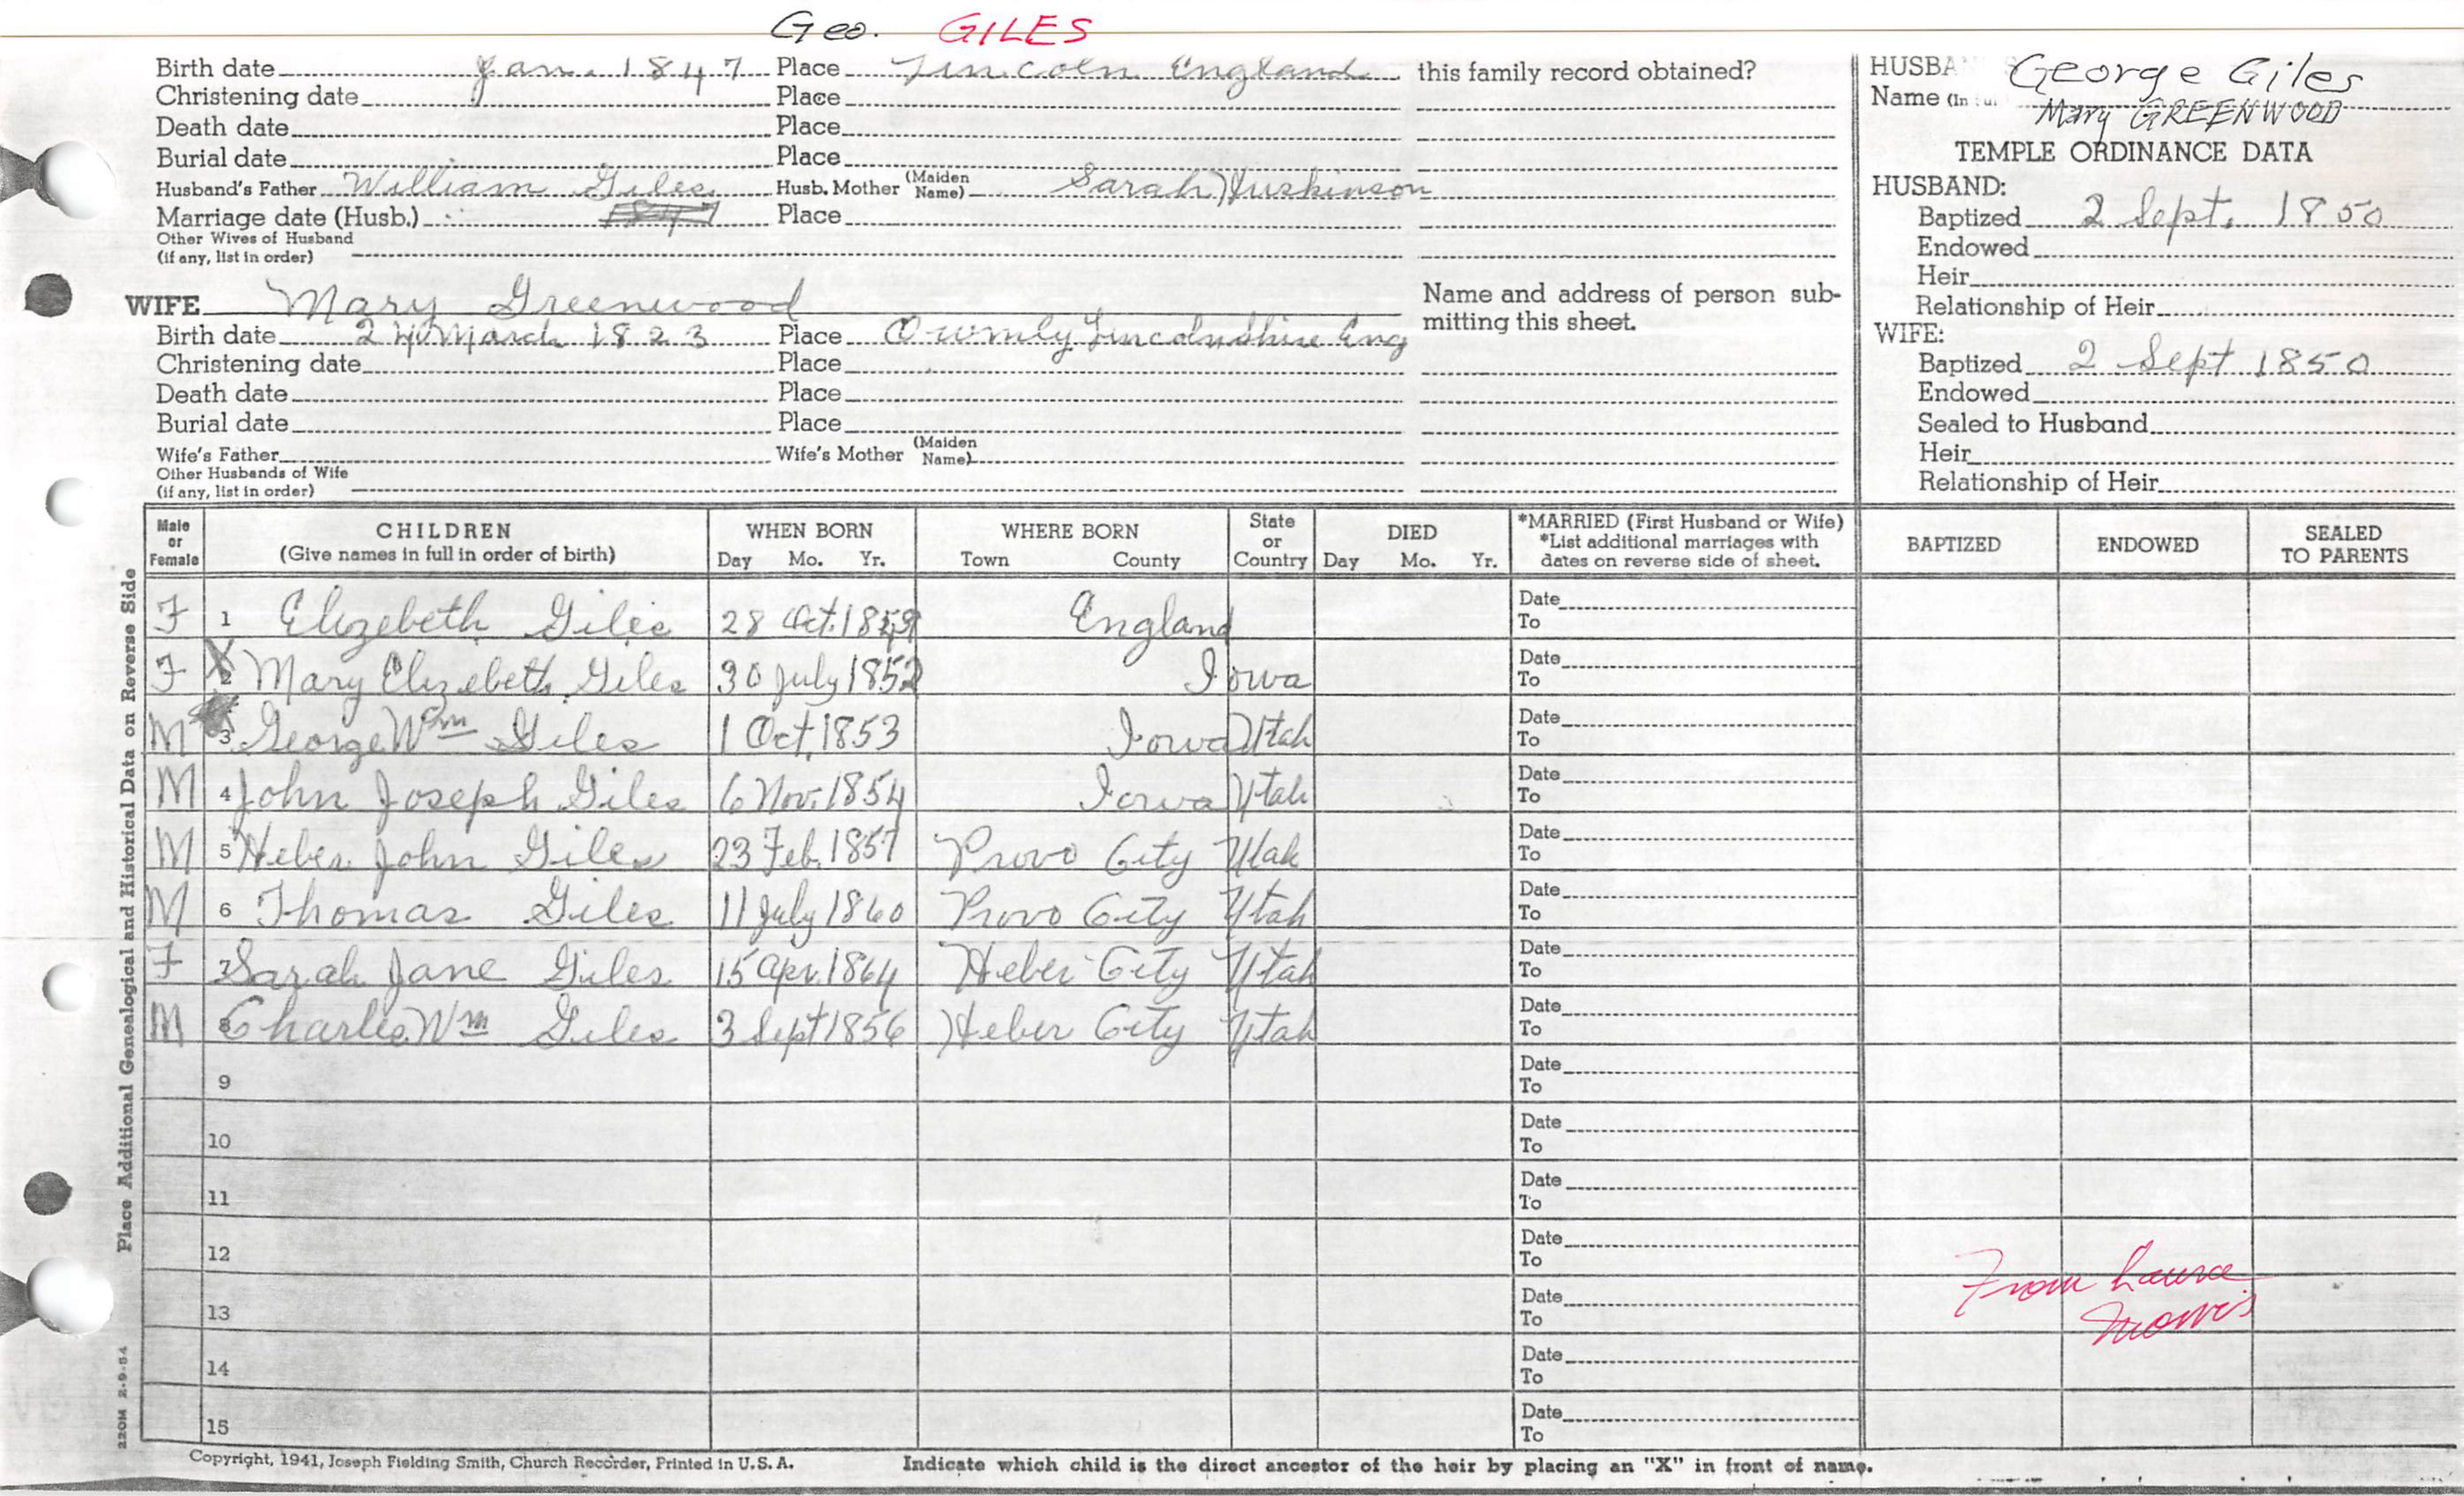 Geo. GILES
Birth date Jan. 1847 Place Lincoln England this family record obtained?
Christening date Place
Death date Place
Burial date Place
Husband's Father William Giles Husb. Mother (Maiden Name) Sarah Huskinson
Marriage date (Husb.) Place
Other Wives of Husband
(if any, list in order)
WIFE Mary Greenwood
Birth date 24 March 1823 Place Owmly Lincolnshire Eng
Christening date Place
Death date Place
Burial date Place
Wife's Father Wife's Mother (Maiden Name)
Other Husbands of Wife
(if any, list in order)
Name and address of person sub-
mitting this sheet.
HUSBA George Giles
Name (In Mary GREENWOOD
TEMPLE ORDINANCE DATA
HUSBAND:
Baptized 2 Sept. 1850
Endowed
Heir
Relationship of Heir
WIFE:
Baptized 2 Sept 1850
Endowed
Sealed to Husband
Heir
Relationship of Heir
Male or Female CHILDREN (Give names in full in order of birth) WHEN BORN Day Mo. Yr. WHERE BORN Town County State or Country DIED Day Mo. Yr. *MARRIED (First Husband or Wife) *List additional marriages with dates on reverse side of sheet. BAPTIZED ENDOWED SEALED TO PARENTS
F 1 Elizebeth Giles 28 Oct. England Date
To
F X 2 Mary Elizebeth Giles 30 July 1852 Iowa Date
To
M 3 George Wm Giles 1 Oct. 1853 Iowa Utah Date
To
M 4 John Joseph Giles 6 Nov. 1854 Iowa Utah Date
To
M 5 Heber John Giles 23 Feb. 1857 Provo City Utah Date
To
M 6 Thomas Giles 11 July 1860 Provo City Utah Date
To
F 7 Sarah Jane Giles 15 Apr. 1864 Heber City Utah Date
To
M 8 Charles Wm Giles 3 Sept 1856 Heber City Utah Date
To
9 Date
To
10 Date
To
11 Date
To
12 Date
To
13 Date
To
14 Date
To
15 Date
To
From Laura
Morris
Place Additional Genealogical and Historical Data on Reverse Side
220M 2-9-54
Copyright, 1941, Joseph Fielding Smith, Church Recorder, Printed in U. S. A. Indicate which child is the direct ancestor of the heir by placing an "X" in front of name.